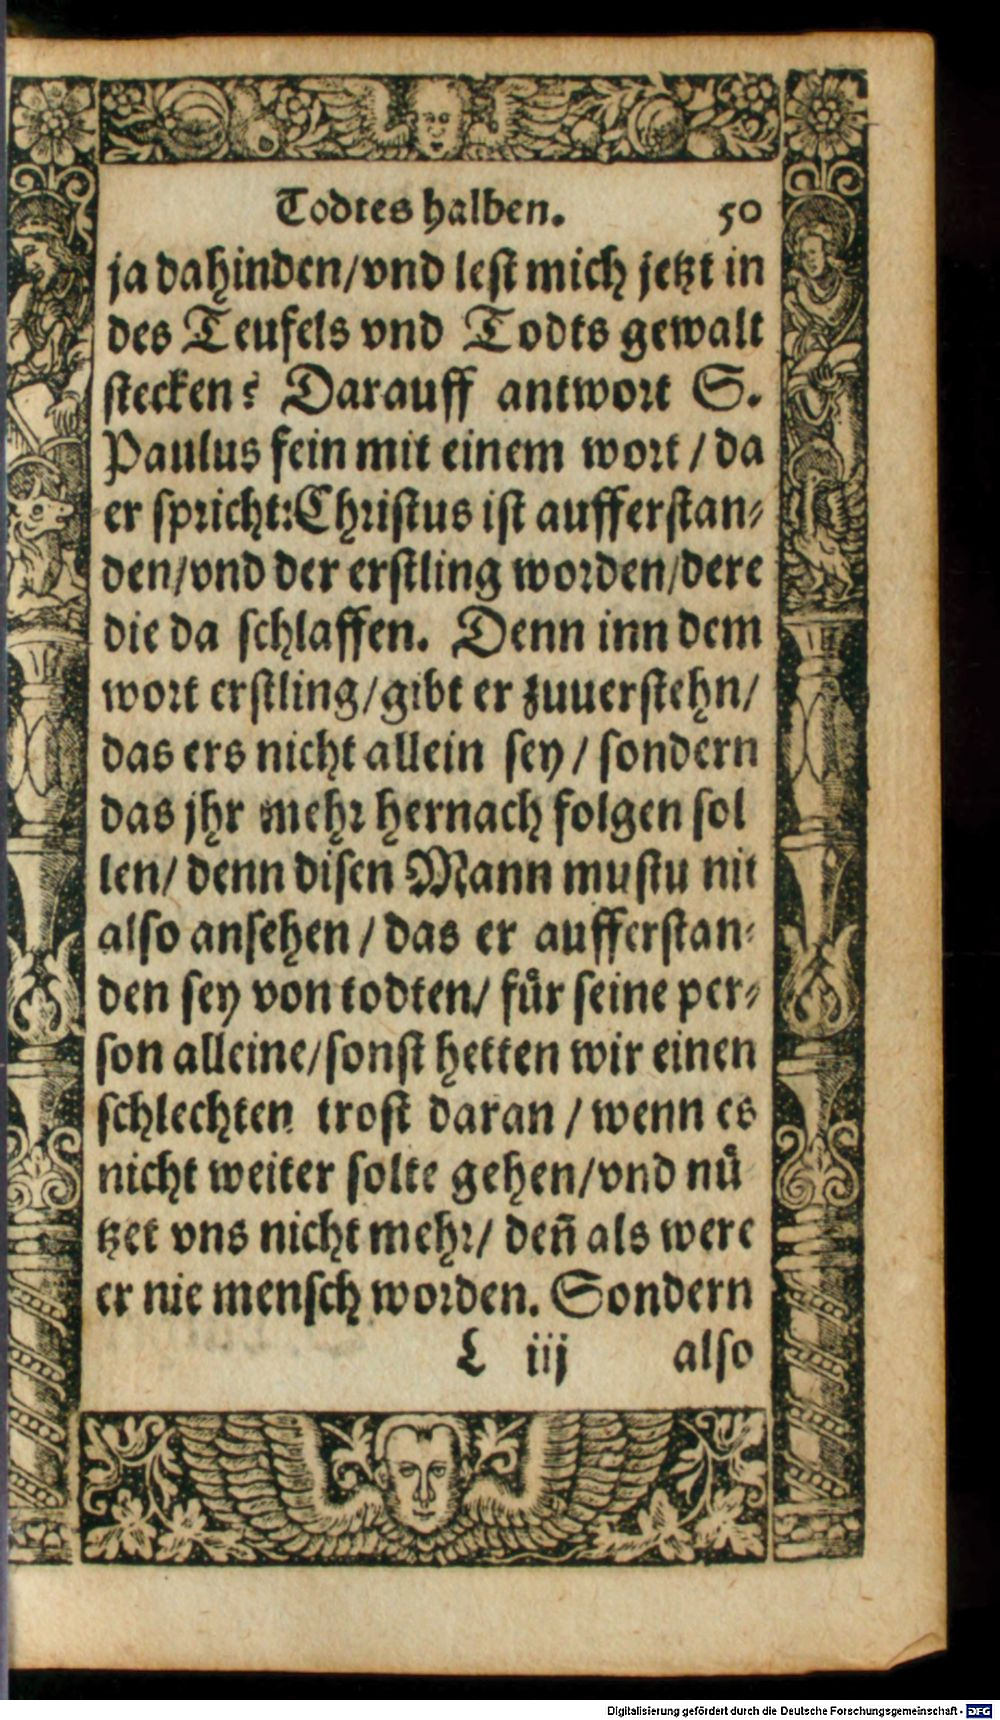 Todtes halben. 50
ja dahinden/vnd lest mich jetzt in
des Teufels vnd Todts gewalt
stecken? Darauff antwort S.
Paulus fein mit einem wort / da
er spricht:Christus ist aufferstan⸗
den/vnd der erstling worden/dere
die da schlaffen. Denn inn dem
wort erstling/gibt er zuuerstehn/
das ers nicht allein sey / sondern
das jhr mehr hernach folgen sol
len/ denn disen Mann mustu nit
also ansehen / das er aufferstan⸗
den sey von todten/ fuͤr seine per⸗
son alleine/sonst hetten wir einen
schlechten trost daran / wenn es
nicht weiter solte gehen/vnd nuͤ
tzet vns nicht mehr/ deñ als were
er nie mensch worden. Sondern
L iij also
Digitalisierung gefördert durch die Deutsche Forschungsgemeinschaft - DFG